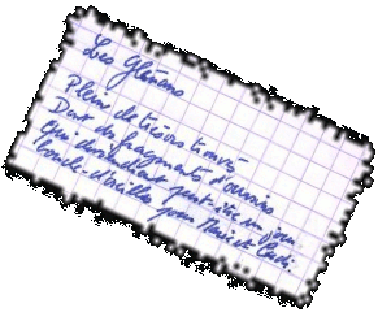 Les Glénans
Plein de trésors trouvés
Dont des fragments d'oursins
Qui deviendront peut-être un jour
boucle-d'oreilles pour Marie et